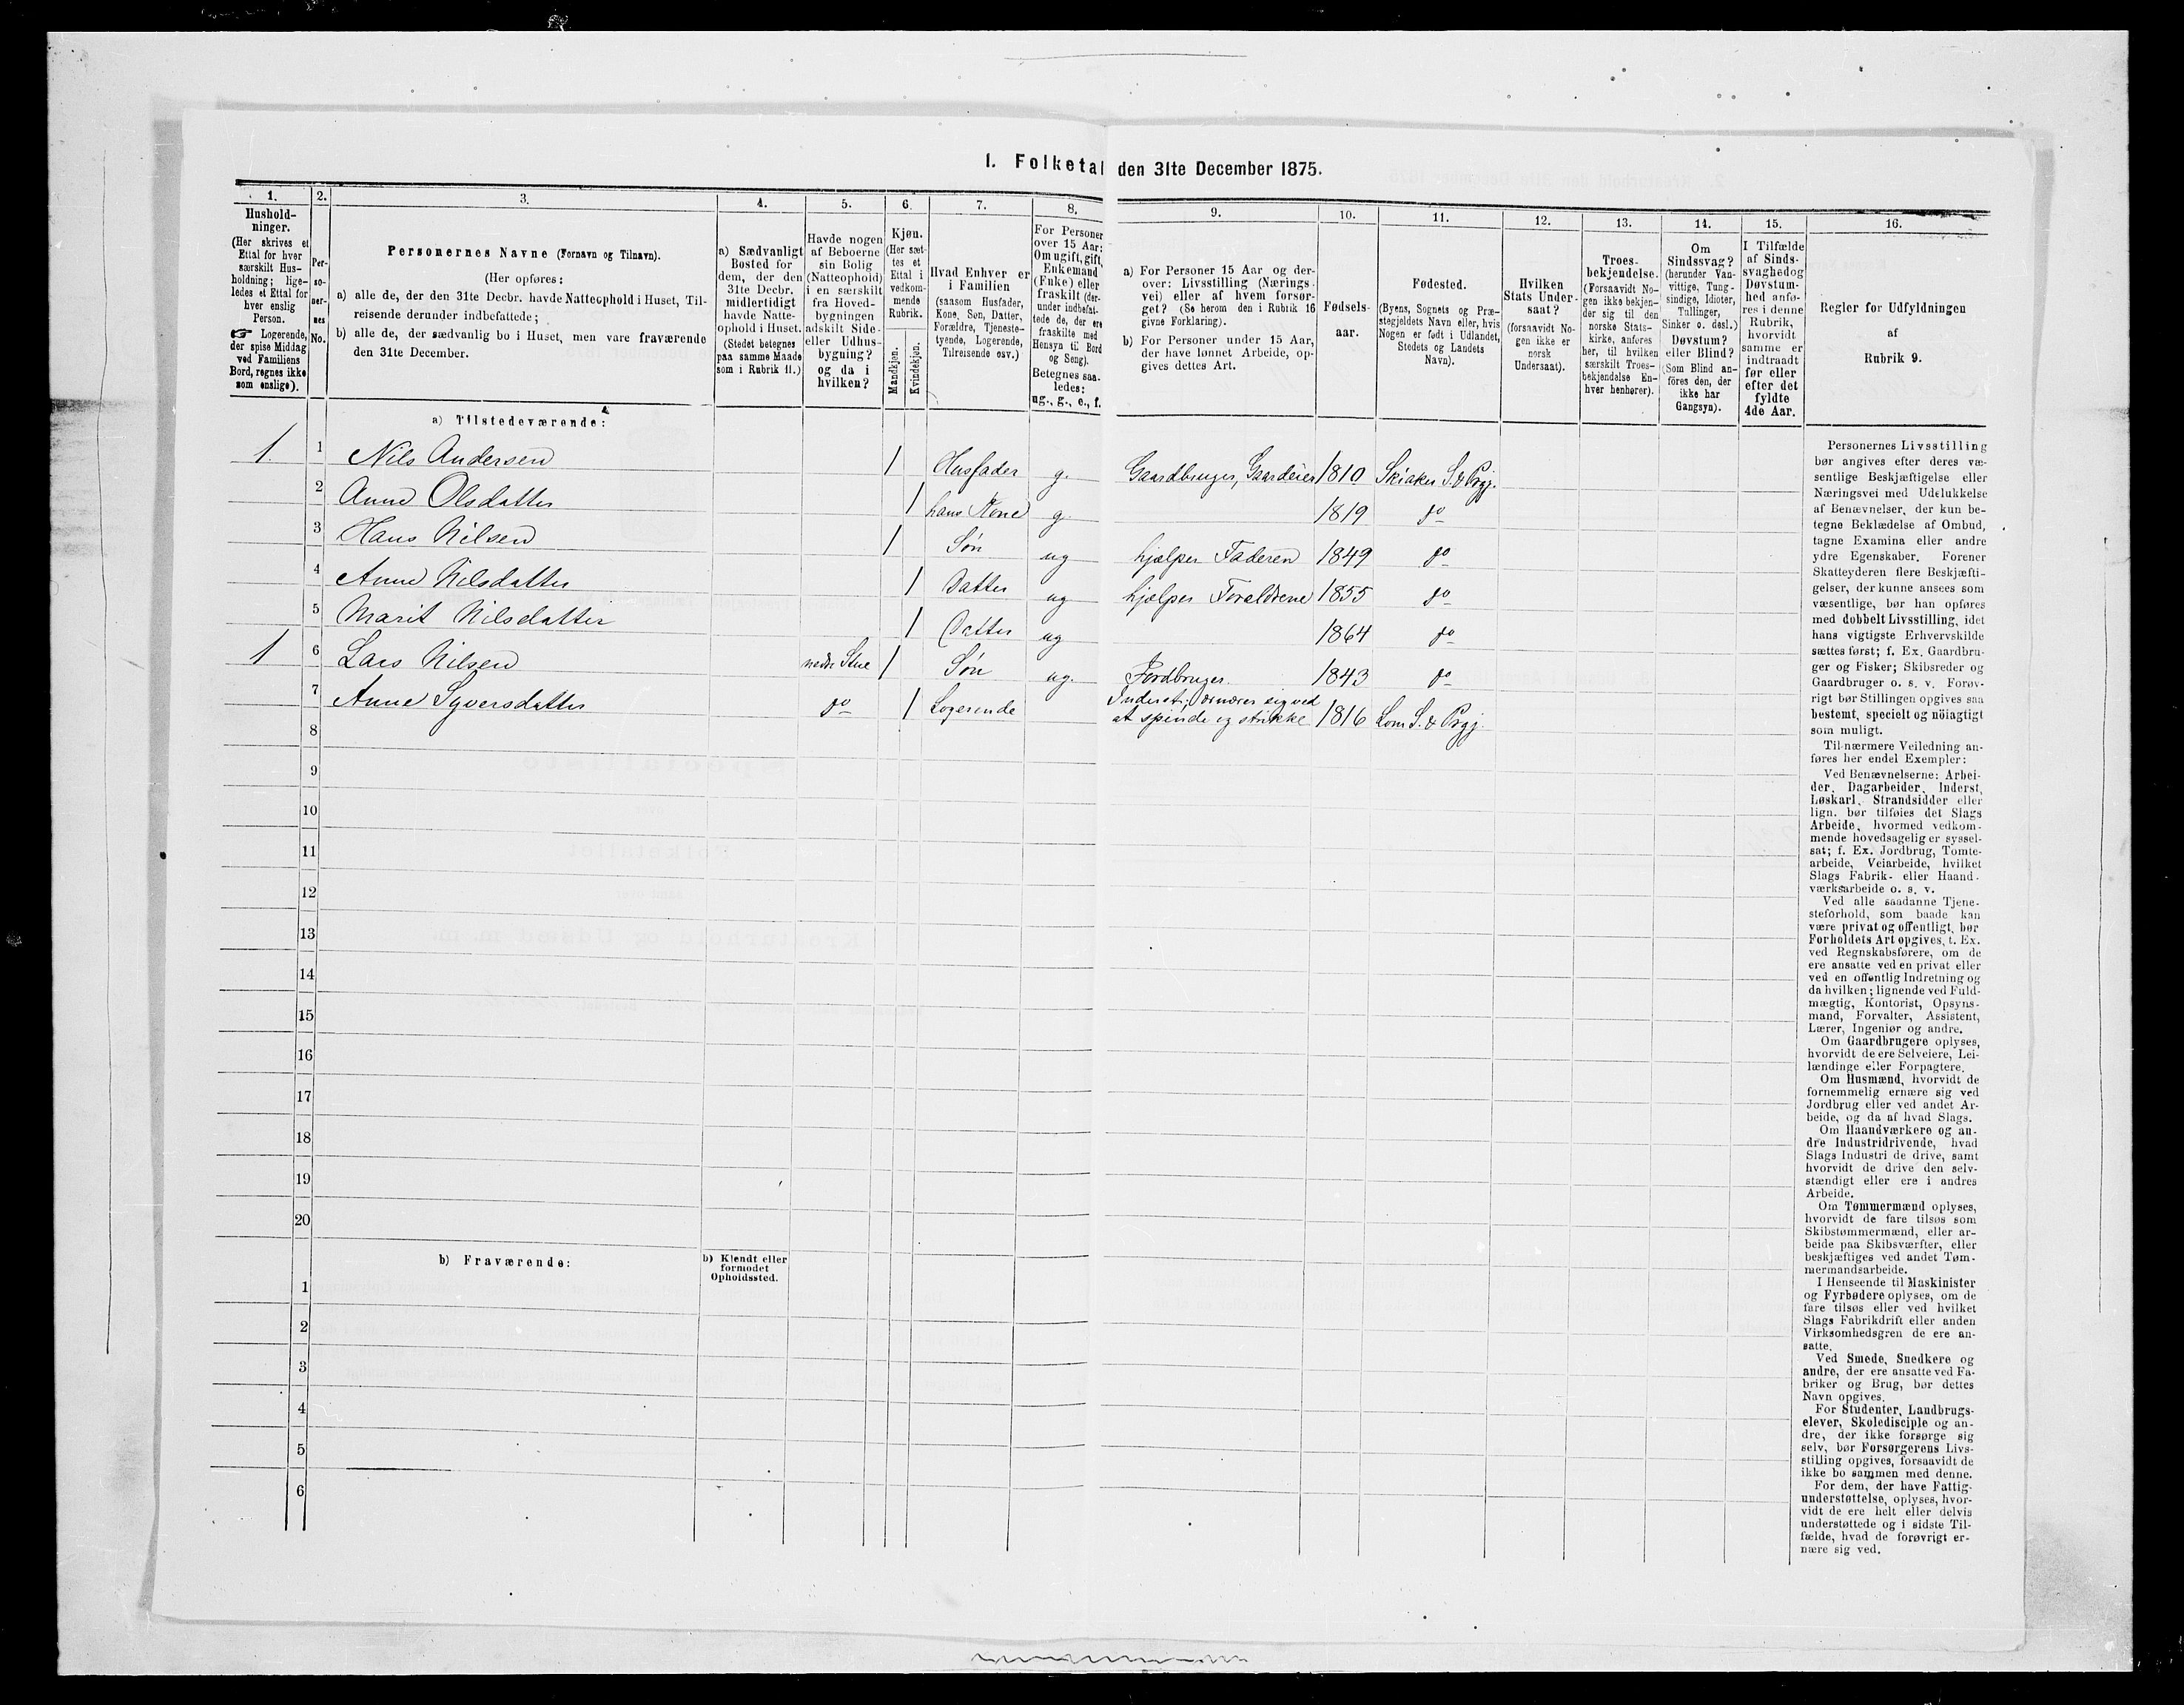 I. Folketal den 31te December 1875.
1.
Hushold-
ninger.
(Her skrives et
Ettal for hver
særskilt Hus-
holdning; lige-
ledes et Ettal for
hver enslig
Person.
☞ Logerende,
der spise Middag
ved Familiens
Bord, regnes ikke
som enslige).
2.
Per-
so-
ner-
nes
No.
3.
Personernes Navne (Fornavn og Tilnavn).
(Her opføres:
a) alle de, der den 31te Decbr. havde Natteophold i Huset, Til-
reisende derunder indbefattede;
b) alle de, der sædvanlig bo i Huset, men vare fraværende
den 31te December.
4.
a) Sædvanligt
Bosted for
dem, der den
31te Decbr.
midlertidigt
havde Natte-
ophold i Huset.
(Stedet betegnes
paa samme Maade
som i Rubrik 11.)
5.
Havde nogen
af Beboerne
sin Bolig
(Natteophold)
i en særskilt
fra Hoved-
bygningen
adskilt Side-
eller Udhus-
bygning?
og da i
hvilken?
6.
Kjøn.
(Her sæt-
tes et
Ettal i
vedkom-
mende
Rubrik.
Mandkjøn.
Kvindekjøn.
7.
Hvad Enhver er
i Familien
(saasom Husfader,
Kone, Søn, Datter,
Forældre, Tjeneste-
tyende, Logerende,
Tilreisende osv.)
8.
For Personer
over 15 Aar:
Om ugift, gift,
Enkemand
(Enke) eller
fraskilt (der-
under indbefat-
tede de, der ere
fraskilte med
Hensyn til Bord
og Seng).
Betegnes saa-
ledes:
ug., g., e., f.
9.
a) For Personer 15 Aar og der-
over: Livsstilling (Nærings-
vei) eller af hvem forsør-
get? (Se herom den i Rubrik 16
givne Forklaring).
b) For Personer under 15 Aar,
der have lønnet Arbeide, op-
gives dettes Art.
10.
Fødsels-
aar.
11.
Fødested.
(Byens, Sognets og Præ-
stegjeldets Navn eller, hvis
Nogen er født i Udlandet,
Stedets og Landets
Navn).
12.
Hvilken
Stats Under-
saat?
(forsaavidt No-
gen ikke er
norsk
Undersaat).
13.
Troes-
bekjendelse.
(Forsaavidt No-
gen ikke bekjen-
der sig til den
norske Stats-
kirke, anføres
her, til hvilken
særskilt Troes-
bekjendelse En-
hver henhører).
14.
Om
Sindssvag?
(herunder Van-
vittige, Tung-
sindige, Idioter,
Tullinger,
Sinker o. desl.)
Døvstum?
eller Blind?
(Som Blind an-
føres den, der
ikke har
Gangsyn).
15.
I Tilfælde
af Sinds-
svaghed og
Døvstum-
hed anfø-
res i denne
Rubrik,
hvorvidt
samme er
indtraadt
før eller
efter det
fyldte
4de Aar.
16.
Regler for Udfyldningen
af
Rubrik 9.
a) Tilstedeværende:
1 1 Nils Andersen 1 Husfader g. Gaardbruger, Gaardeier 1810 Skiaker S. & Prgj.
2 Anne Olsdatter 1 hans Kone g. 1819 do
3 Hans Nilsen 1 Søn ug hjælper Faderen 1849 do
4 Anne Nilsdatter 1 Datter ug hjælper Forældrene 1855 do
5 Marit Nilsdatter 1 Datter ug 1864 do
1 6 Lars Nilsen nedr Stue 1 Søn ug. Jordbruger. 1843 do
7 Anne Syversdatter do 1 Logerende Inderst; ernærer sig ved
at spinde og strikke 1816 Lom S. & Prgj.
8
9
10
11
12
13
14
15
16
17
18
19
20
b) Fraværende:
b) Kjendt eller
formodet
Opholdssted.
1
2
3
4
5
6
Personernes Livsstilling
bør angives efter deres væ-
sentlige Beskjæftigelse eller
Næringsvei med Udelukkelse
af Benævnelser, der kun be-
tegne Beklædelse af Ombud,
tagne Examina eller andre
ydre Egenskaber. Forener
Skatteyderen flere Beskjæfti-
gelser, der kunne ansees som
væsentlige, bør han opføres
med dobbelt Livsstilling, idet
hans vigtigste Erhvervskilde
sættes først; f. Ex. Gaardbru-
ger og Fisker; Skibsreder og
Gaardbruger o. s. v. Forøv-
rigt bør Stillingen opgives saa
bestemt, specielt og nöiagtigt
som muligt.
Til nærmere Veiledning an-
føres her endel Exempler:
Ved Benævnelserne: Arbei-
der, Dagarbeider, Inderst,
Løskarl, Strandsidder eller
lign. bør tilføies det Slags
Arbeide, hvormed vedkom-
mende hovedsagelig er syssel-
sat; f. Ex. Jordbrug, Tomte-
arbeide, Veiarbeide, hvilket
Slags Fabrik- eller Haand-
værksarbeide o. s. v.
Ved alle saadanne Tjene-
steforhold, som baade kan
være privat og offentligt, bør
Forholdets Art opgives, t. Ex.
ved Regnskabsførere, om de
ere ansatte ved en privat eller
ved en offentlig Indretning og
da hvilken; lignende ved Fuld-
mægtig, Kontorist, Opsyns-
mand, Forvalter, Assistent,
Lærer, Ingeniør og andre.
Om Gaardbrugere oplyses,
hvorvidt de ere Selveiere, Lei-
lændinge eller Forpagtere.
Om Husmænd, hvorvidt de
fornemmelig ernære sig ved
Jordbrug eller ved andet Ar-
beide, og da af hvad Slags.
Om Haandværkere og an-
dre Industridrivende, hvad
Slags Industri de drive, samt
hvorvidt de drive den selv-
stændigt eller ere i andres
Arbeide.
Om Tømmermænd oplyses,
hvorvidt de fare tilsøs som
Skibstømmermænd, eller ar-
beide paa Skibsværfter, eller
beskjæftiges ved andet Tøm-
mermandsarbeide.
I Henseende til Maskinister
og Fyrbødere oplyses, om de
fare tilsøs eller ved hvilket
Slags Fabrikdrift eller anden
Virksomhedsgren de ere an-
satte.
Ved Smede, Snedkere og
andre, der ere ansatte ved Fa-
briker og Brug, bør dettes
Navn opgives.
For Studenter, Landbrugs-
elever, Skoledisciple og an-
dre, der ikke forsørge sig
selv, bør Forsørgerens Livs-
stilling opgives, forsaavidt de
ikke bo sammen med denne.
For dem, der have Fattig-
understøttelse, oplyses, hvor-
vidt de ere helt eller delvis
understøttede og i sidste Til-
fælde, hvad de forøvrigt er-
nære sig ved.